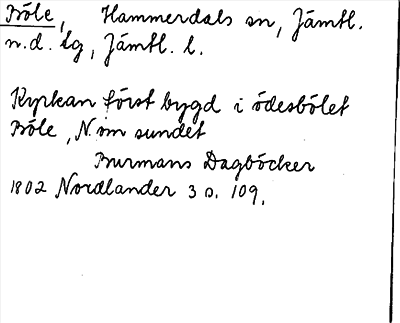 Böle, Hammerdals sn, Jämtl.
n.d. tg, Jämtl. l.
Kyrkan först bygd i ödesbölet
Böle, N om sundet
Burmans Dagböcker
1802 Nordlander 3 s. 109.